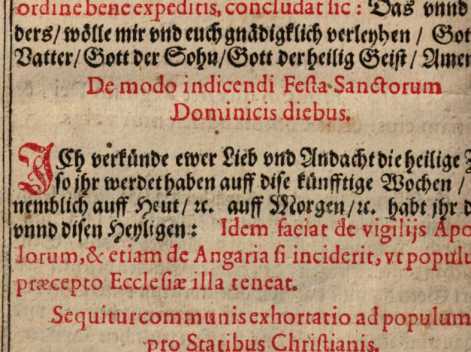 ordine bene expeditis, concludat sic : Das vnnd
ders/ wölle mir vnd euch gnädigklich verleyhen / Got
Vatter/ Gott der Sohn/ Gott der heilig Geist / Amen
De modo indicendi Festa Sanctorum
Dominicis diebus.
ICh verkünde ewer Lieb vnd Andacht die heilige Z
so jhr werdet haben auff dise künfftige Wochen /
nemblich auff Heut/ ꝛc. auff Morgen/ ꝛc. habt jhr d
vnnd disen Heyligen : Idem faciat de vigilijs Apo
lorum, & etiam de Angaria si inciderit, vt populu
præcepto Ecclesiæ illa teneat.
Sequitur communis exhortatio ad populum
pro Statibus Christianis.